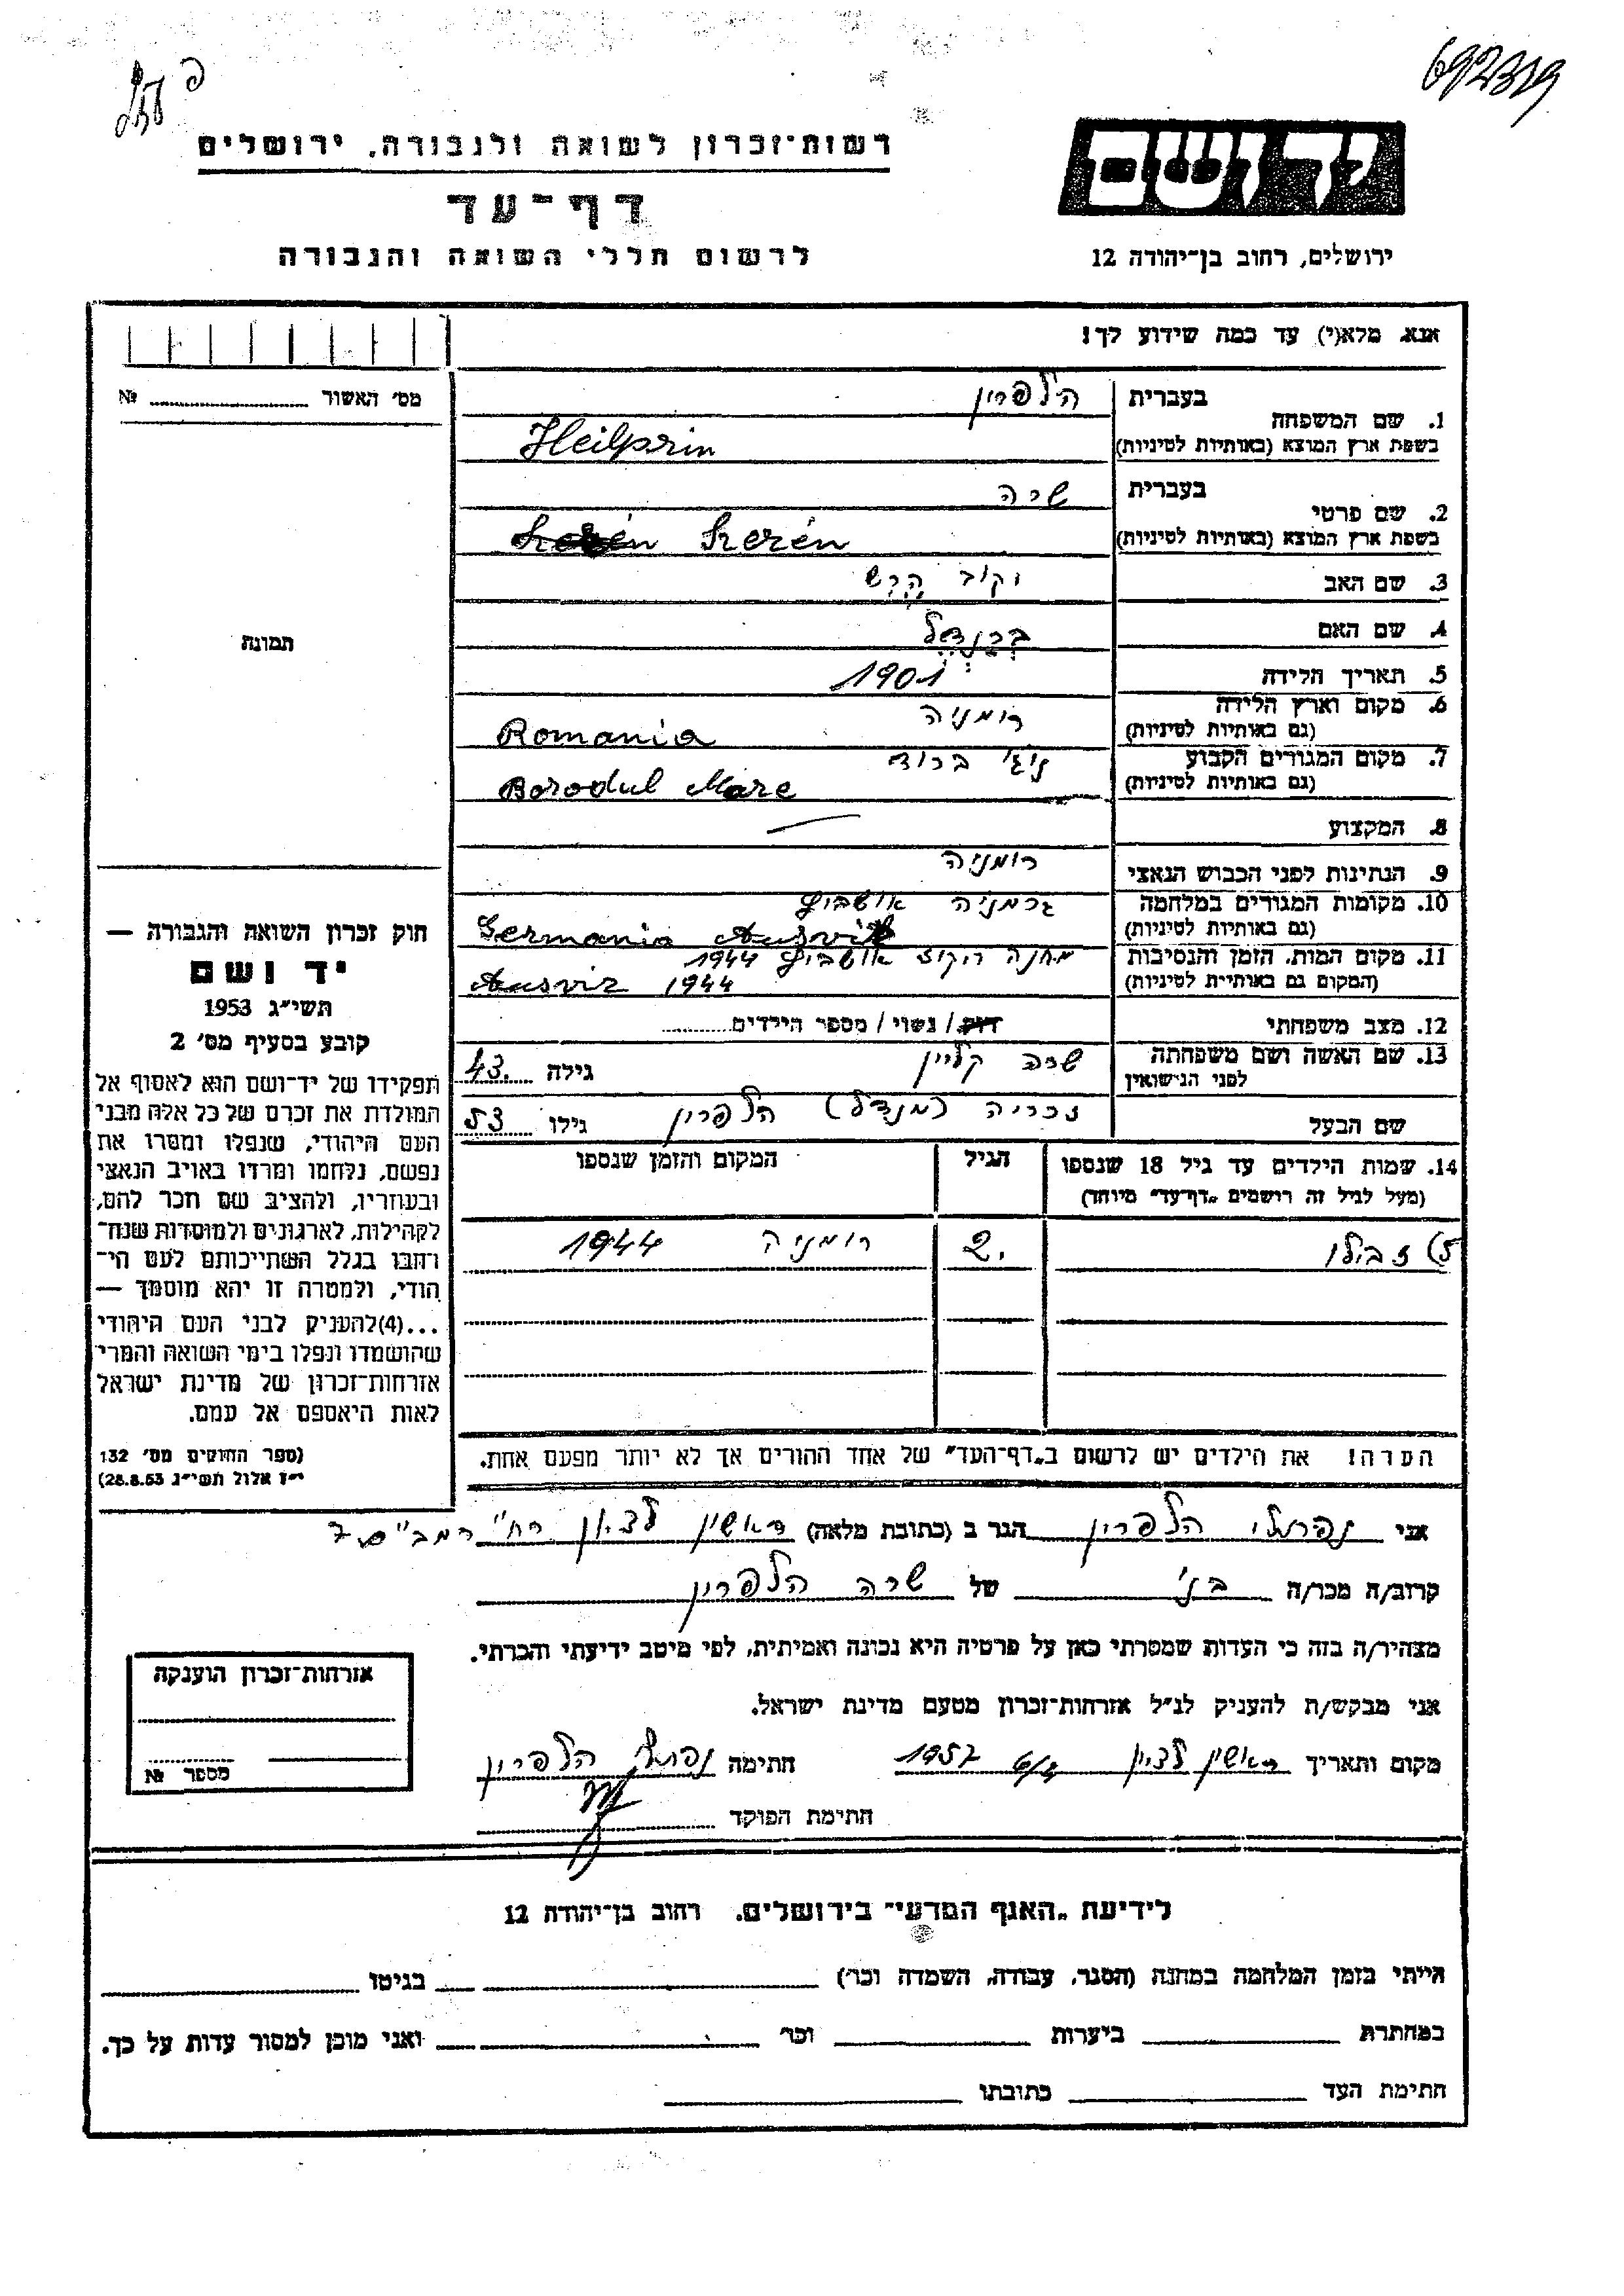 692319
רשות־זכרון לשואה ולגבורה, ירושלים
דף־עד
לרשום חללי השואה והגבורה
יד ושם
ירושלים, רחוב בן־יהודה 12
אנא, מלא(י) עד כמה שידוע לך!
מס׳ האשור № 
תמונה
1. שם המשפחה
בעברית הילפרין
בשפת ארץ המוצא (באותיות לטיניות) Heilprin
2. שם פרטי
בעברית שרה
בשפת ארץ המוצא (באותיות לטיניות) Szerén
3. שם האב יקוב הרש
4. שם האם ברנדל
5. תאריך הלידה 1901
6. מקום וארץ הלידה רומניה
(גם באותיות לטיניות) Romania
7. מקום המגורים הקבוע ניג׳ ברוד
(גם באותיות לטיניות) Borodul Mare
8. המקצוע —
9. הנתינות לפני הכבוש הנאצי רומניה
10. מקומות המגורים במלחמה גרמניה אושביץ
(גם באותיות לטיניות) Germania Ausvitz
11. מקום המות, הזמן והנסיבות מחנה ריקוז אושביץ 1944
(המקום גם באותיות לטיניות) Ausviz 1944
12. מצב משפחתי רווק/ נשוי/ מספר הילדים
13. שם האשה ושם משפחתה שרה קליין גילה 43.
לפני הנישואין
שם הבעל זכריה (מנדל) הלפרין גילו 53
14. שמות הילדים עד גיל 18 שנספו הגיל המקום והזמן שנספו
(מעל לגיל זה רושמים „דף־עד״ מיוחד)
זבולו 2. רומניה 1944
הערה! את הילדים יש לרשום ב„דף־העד״ של אחד ההורים אך לא יותר מפעם אחת.
חוק זכרון השואה והגבורה —
יד ושם
תשי״ג 1953
קובע בסעיף מס׳ 2
תפקידו של יד־ושם הוא לאסוף אל
המולדת את זכרם של כל אלה מבני
העם היהודי, שנפלו ומסרו את
נפשם, נלחמו ומרדו באויב הנאצי
ובעוזריו, ולהציב שם וזכר להם,
לקהילות, לארגונים ולמוסדות שנח־
רבו בגלל השתייכותם לעם הי־
הודי, ולמטרה זו יהא מוסמך —
...(4)להעניק לבני העם היהודי
שהושמדו ונפלו בימי השואה והמרי
אזרחות־זכרון של מדינת ישראל
לאות היאספם אל עמם.
(ספר החוקים מס׳ 132
י״ז אלול תשי״ג 28.8.53)
אני נפתלי הלפרין הגר ב (כתובת מלאה) ראשון לציון רח׳ רמב״ם 7
קרוב/ה מכר/ה בני של שרה הלפרין
מצהיר/ה בזה כי העדות שמסרתי כאן על פרטיה היא נכונה ואמיתית, לפי מיטב ידיעתי והכרתי.
אני מבקש/ת להעניק לנ״ל אזרחות־זכרון מטעם מדינת ישראל.
מקום ותאריך ראשון לציון 1957 חתימה נפתלי הלפרין
חתימת הפוקד
אזרחות־זכרון הוענקה
מספר №
לידיעת „האגף המדעי״ בירושלים, רחוב בן־יהודה 12
הייתי בזמן המלחמה במחנה (הסגר, עבודה, השמדה וכו׳) בגיטו
במחתרת ביערות וכו׳ ואני מוכן למסור עדות על כך.
חתימת העד כתובתו